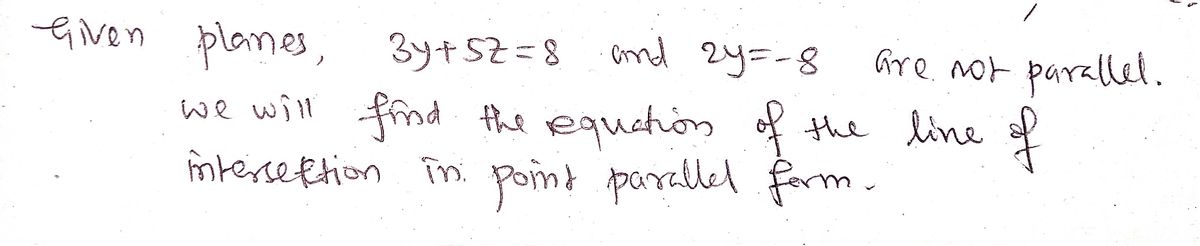 Given planes, 3y+5z=8 and 2y=-8 are not parallel.
we will find the equation of the line of
intersection in point parallel form.